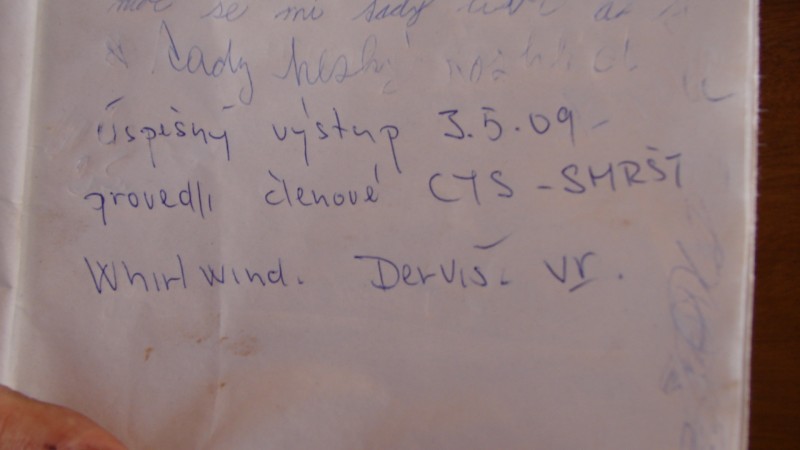 se mi
tady hezky
Úspěšný výstup 3.5.09 -
provedli členové CTS - SMRŠŤ
Whirlwind. Derviš. vr.